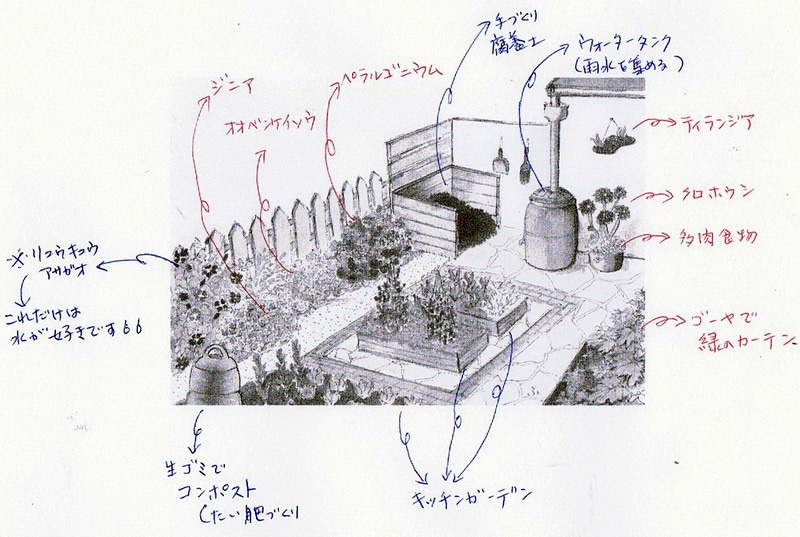 手づくり
腐葉土
ウォータータンク
(雨水を集める)
ジニア
オオベンケイソウ
ペラルゴニウム
ティランジア
クロホウシ
多肉食物
ゴーヤで
緑のカーテン
※・リュウキュウ
アサガオ
これだけは
水が好きです
生ゴミで
コンポスト
(たい肥づくり
キッチンガーデン